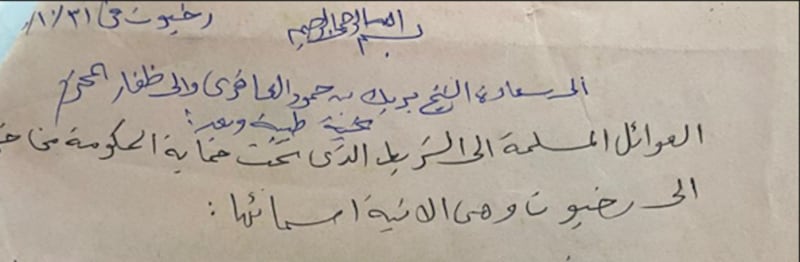 بسم الله الرحمن الرحيم
رخيوت في ٣١/١٠/
الى سعادة الشيخ بريك بن حمود الغافرى والى ظفار المحترم
تحية طيبة وبعد:
العوائل المسلمة الى الشريط الذى تحت حماية الحكومة من
الى رخيوت وهى الاتية اسمائها: